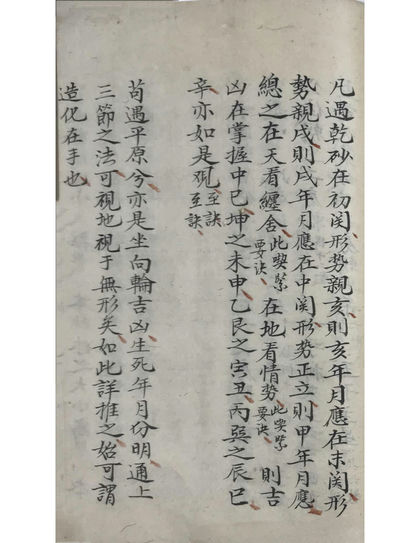 凡遇乾砂在初関形勢親亥則亥年月應在末関形
勢親戌則戌年月應在中関形勢正立則甲年月應
總之在天看纏舍此喫緊要訣在地看情勢此喫緊要訣則吉
凶在掌握中巳坤之未申乙艮之寅丑丙巽之辰巳
辛亦如是觀至訣至訣
苟遇平原兮亦是坐向輪吉凶生死年月份明通上
三節之法可視地視于無形矣如此詳推之始可謂
造化在手也